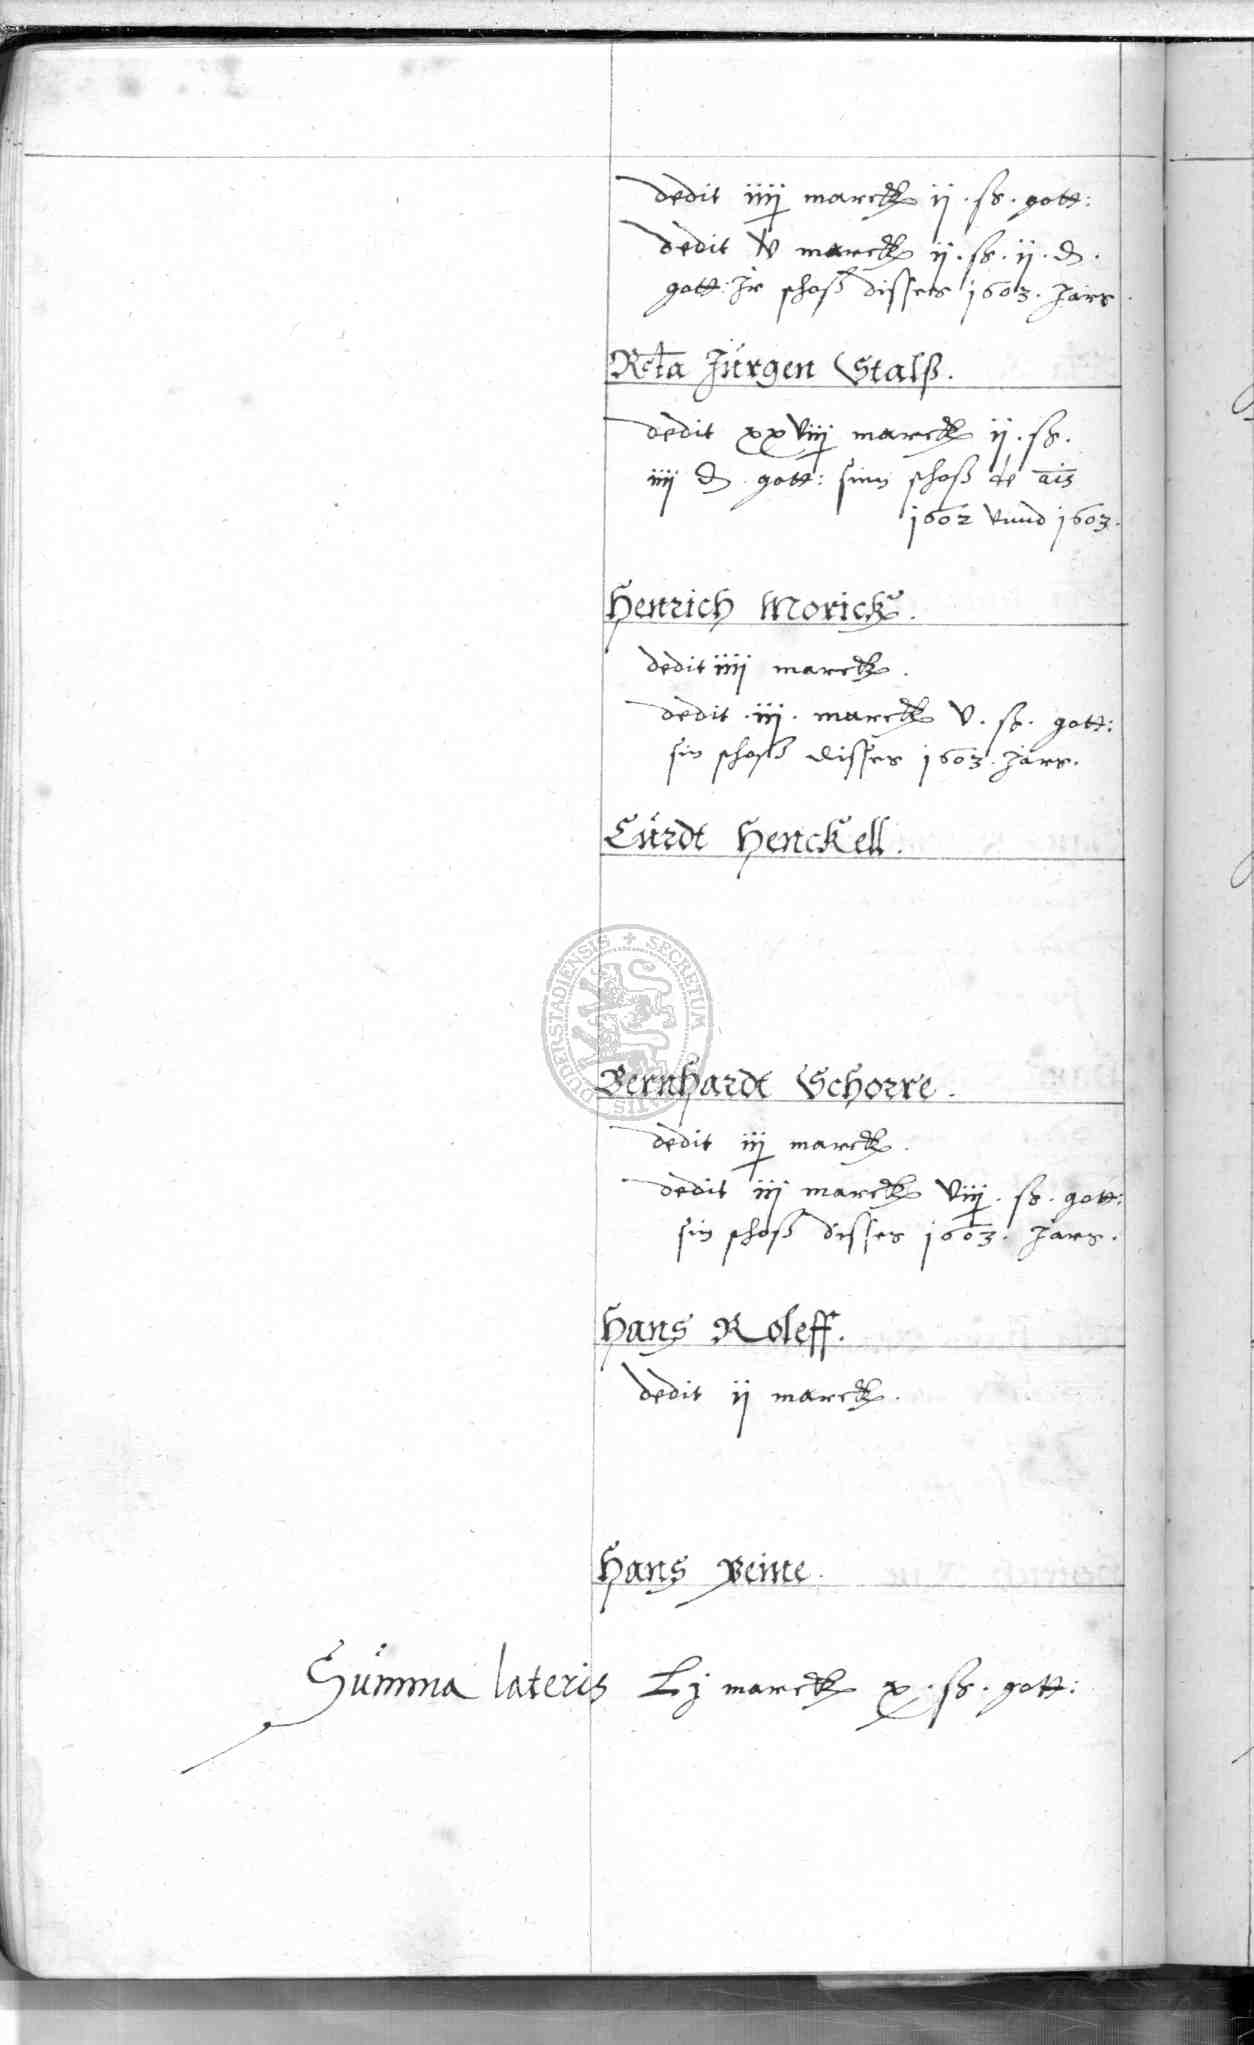 dedit iiij marck ij . ß . gott:
dedit v marck ij . ß . ij . d .
gott: Jr schoß disses 1603. Jars
Rcta Jürgen Stalß .
dedit xxviij marck ij . ß .
iiij d . gott: sinn schoß de ais
1602 vnnd 1603 .
Henrich Morick .
dedit iiij marck .
dedit . iij . marck v . ß . gott:
sin schoß disses 1603 . Jars .
Cürdt Henckell .
Bernhardt Schorre .
dedit iij marck .
dedit iij marck viij . ß . gott:
sin schoß disses 1603 . Jars .
Hans Roleff .
dedit ij marck .
Hans Beine .
Summa lateris Lj marck x . ß . gott:
SECRETUM DUDERSTADIENSIS